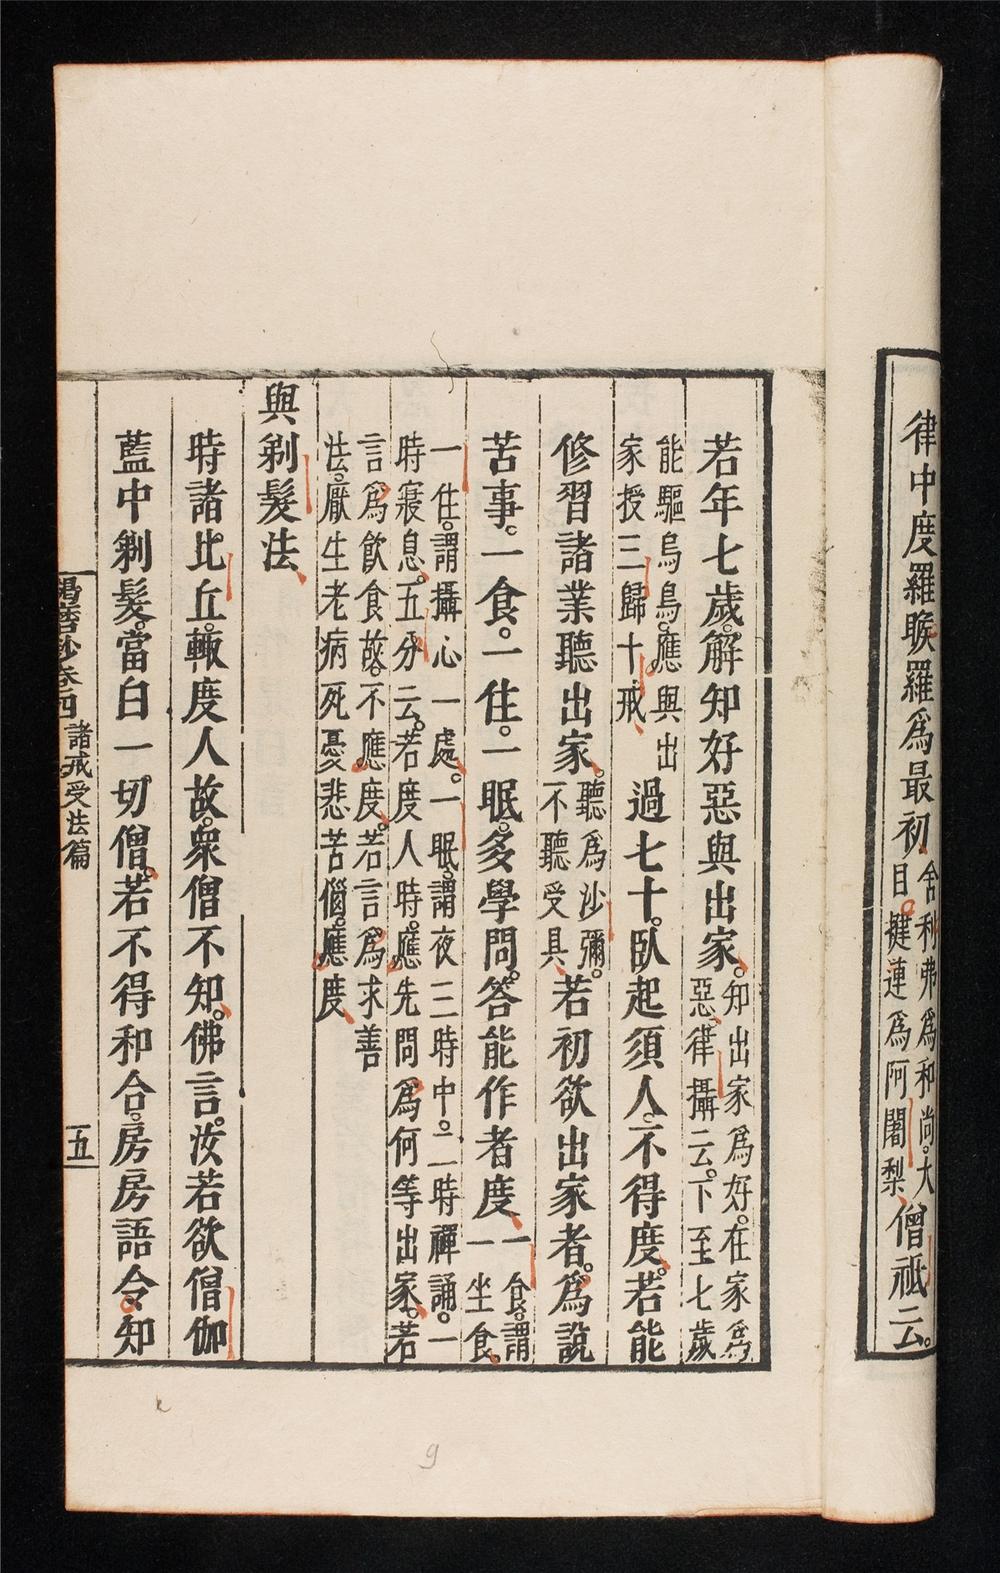 律中度羅睺羅爲最初舍利弗爲和尚。大目。揵連爲阿闍梨僧祇云。
若年七歲。解知好惡與出家。知出家爲好。在家爲惡律攝云。下至七歲
能驅烏鳥。應與出家授三歸十戒過七十。臥起須人。不得度。若能
修習諸業聽出家。聽爲沙彌。不聽受具若初欲出家者。爲說
苦事。一食。一住。一眠。多學問。答能作者度一食。謂一坐食。
一住。謂攝心一處。一眠。謂夜三時中。二時禪誦。一時寢息。五分云。若度人時。應先問爲何等出家。若
言爲飲食故。不應度。若言。爲求善法。厭生老病死憂悲苦惱。應度
與剃髮法
時諸比丘。輙度人故。衆僧不知。佛言。汝若欲僧伽
藍中剃髮。當白一切僧。若不得和合。房房語令知
羯磨抄卷四 諸戒受法篇 五
9